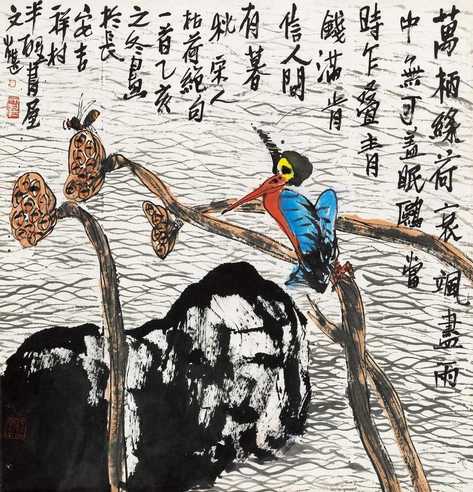 萬柄綠荷衰颯盡雨
中無可蓋眠鷗當
時乍疊青
錢滿肯
信人間
有暮
秋宋人
枯荷絕句
一首乙亥
之冬畫
於長
安吉
祥村
半屋
文湛